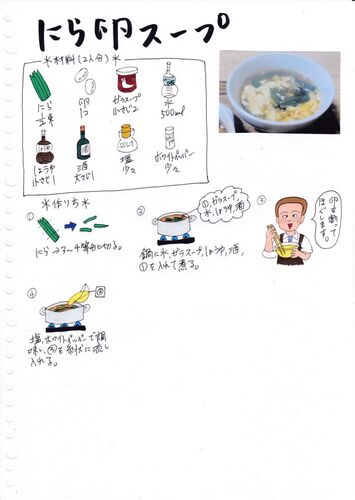 にら卵スープ
＊材料(2人分)＊
にら
1束
卵
1コ
ガラスープ
小さじ2
水
500ml
しょうゆ
小さじ1
酒
大さじ1
SALT
塩
少々
ホワイトペッパー
少々
＊作り方＊
①
にら→3～4等分に切る。
②
①,ガラスープ,
水,しょうゆ,酒
鍋に水,ガラスープ,しょうゆ,酒,
①を入れて煮る。
③
卵を割って
ほぐします。
④
③
塩,ホワイトペッパーで調
味し,③を糸状に流し
入れる。